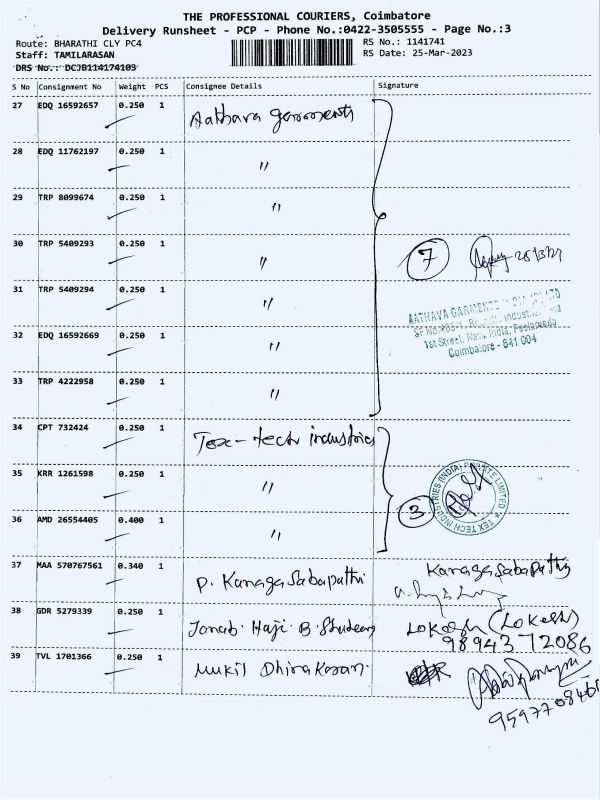 THE PROFESSIONAL COURIERS, Coimbatore
Delivery Runsheet - PCP - Phone No.:0422-3505555 - Page No.:3
Route: BHARATHI CLY PC4 RS No.: 1141741
Staff: TAMILARASAN RS Date: 25-Mar-2023
DRS No.: DCJB114174103
S No Consignment No Weight PCS Consignee Details Signature
27 EDQ 16592657 0.250 1 Aathava garments
28 EDQ 11762197 0.250 1 "
29 TRP 8099674 0.250 1 "
30 TRP 5409293 0.250 1 " 7
31 TRP 5409294 0.250 1 "
AATHAVA GARMENTS
1st Street, Nava India, Peelamedu
Coimbatore - 641 004
32 EDQ 16592669 0.250 1 "
33 TRP 4222958 0.250 1 "
34 CPT 732424 0.250 1 Tex-tech industries
35 KRR 1261598 0.250 1 "
TEX TECH INDUSTRIES (INDIA) PRIVATE LIMITED
36 AMD 26554405 0.400 1 " 3
37 MAA 570767561 0.340 1 P. Kanagasabapathi Kanagasabapathy
38 GDR 5279339 0.250 1 Janab. Haji. B. Lokesh (Lokesh)
98943 72086
39 TVL 1701366 0.250 1 Mukil Dhirakaran.